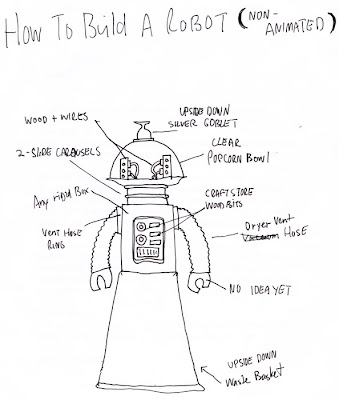 How To Build A ROBOT (NON-
ANIMATED)
WOOD + WIRES
UPSIDE DOWN
SILVER GOBLET
2-SLIDE CAROUSELS
CLEAR
POPCORN BOWL
Any rigid Box
CRAFT STORE
WOOD BITS
VENT HOSE
RING
Dryer Vent
HOSE
NO IDEA YET
UPSIDE DOWN
Waste Basket